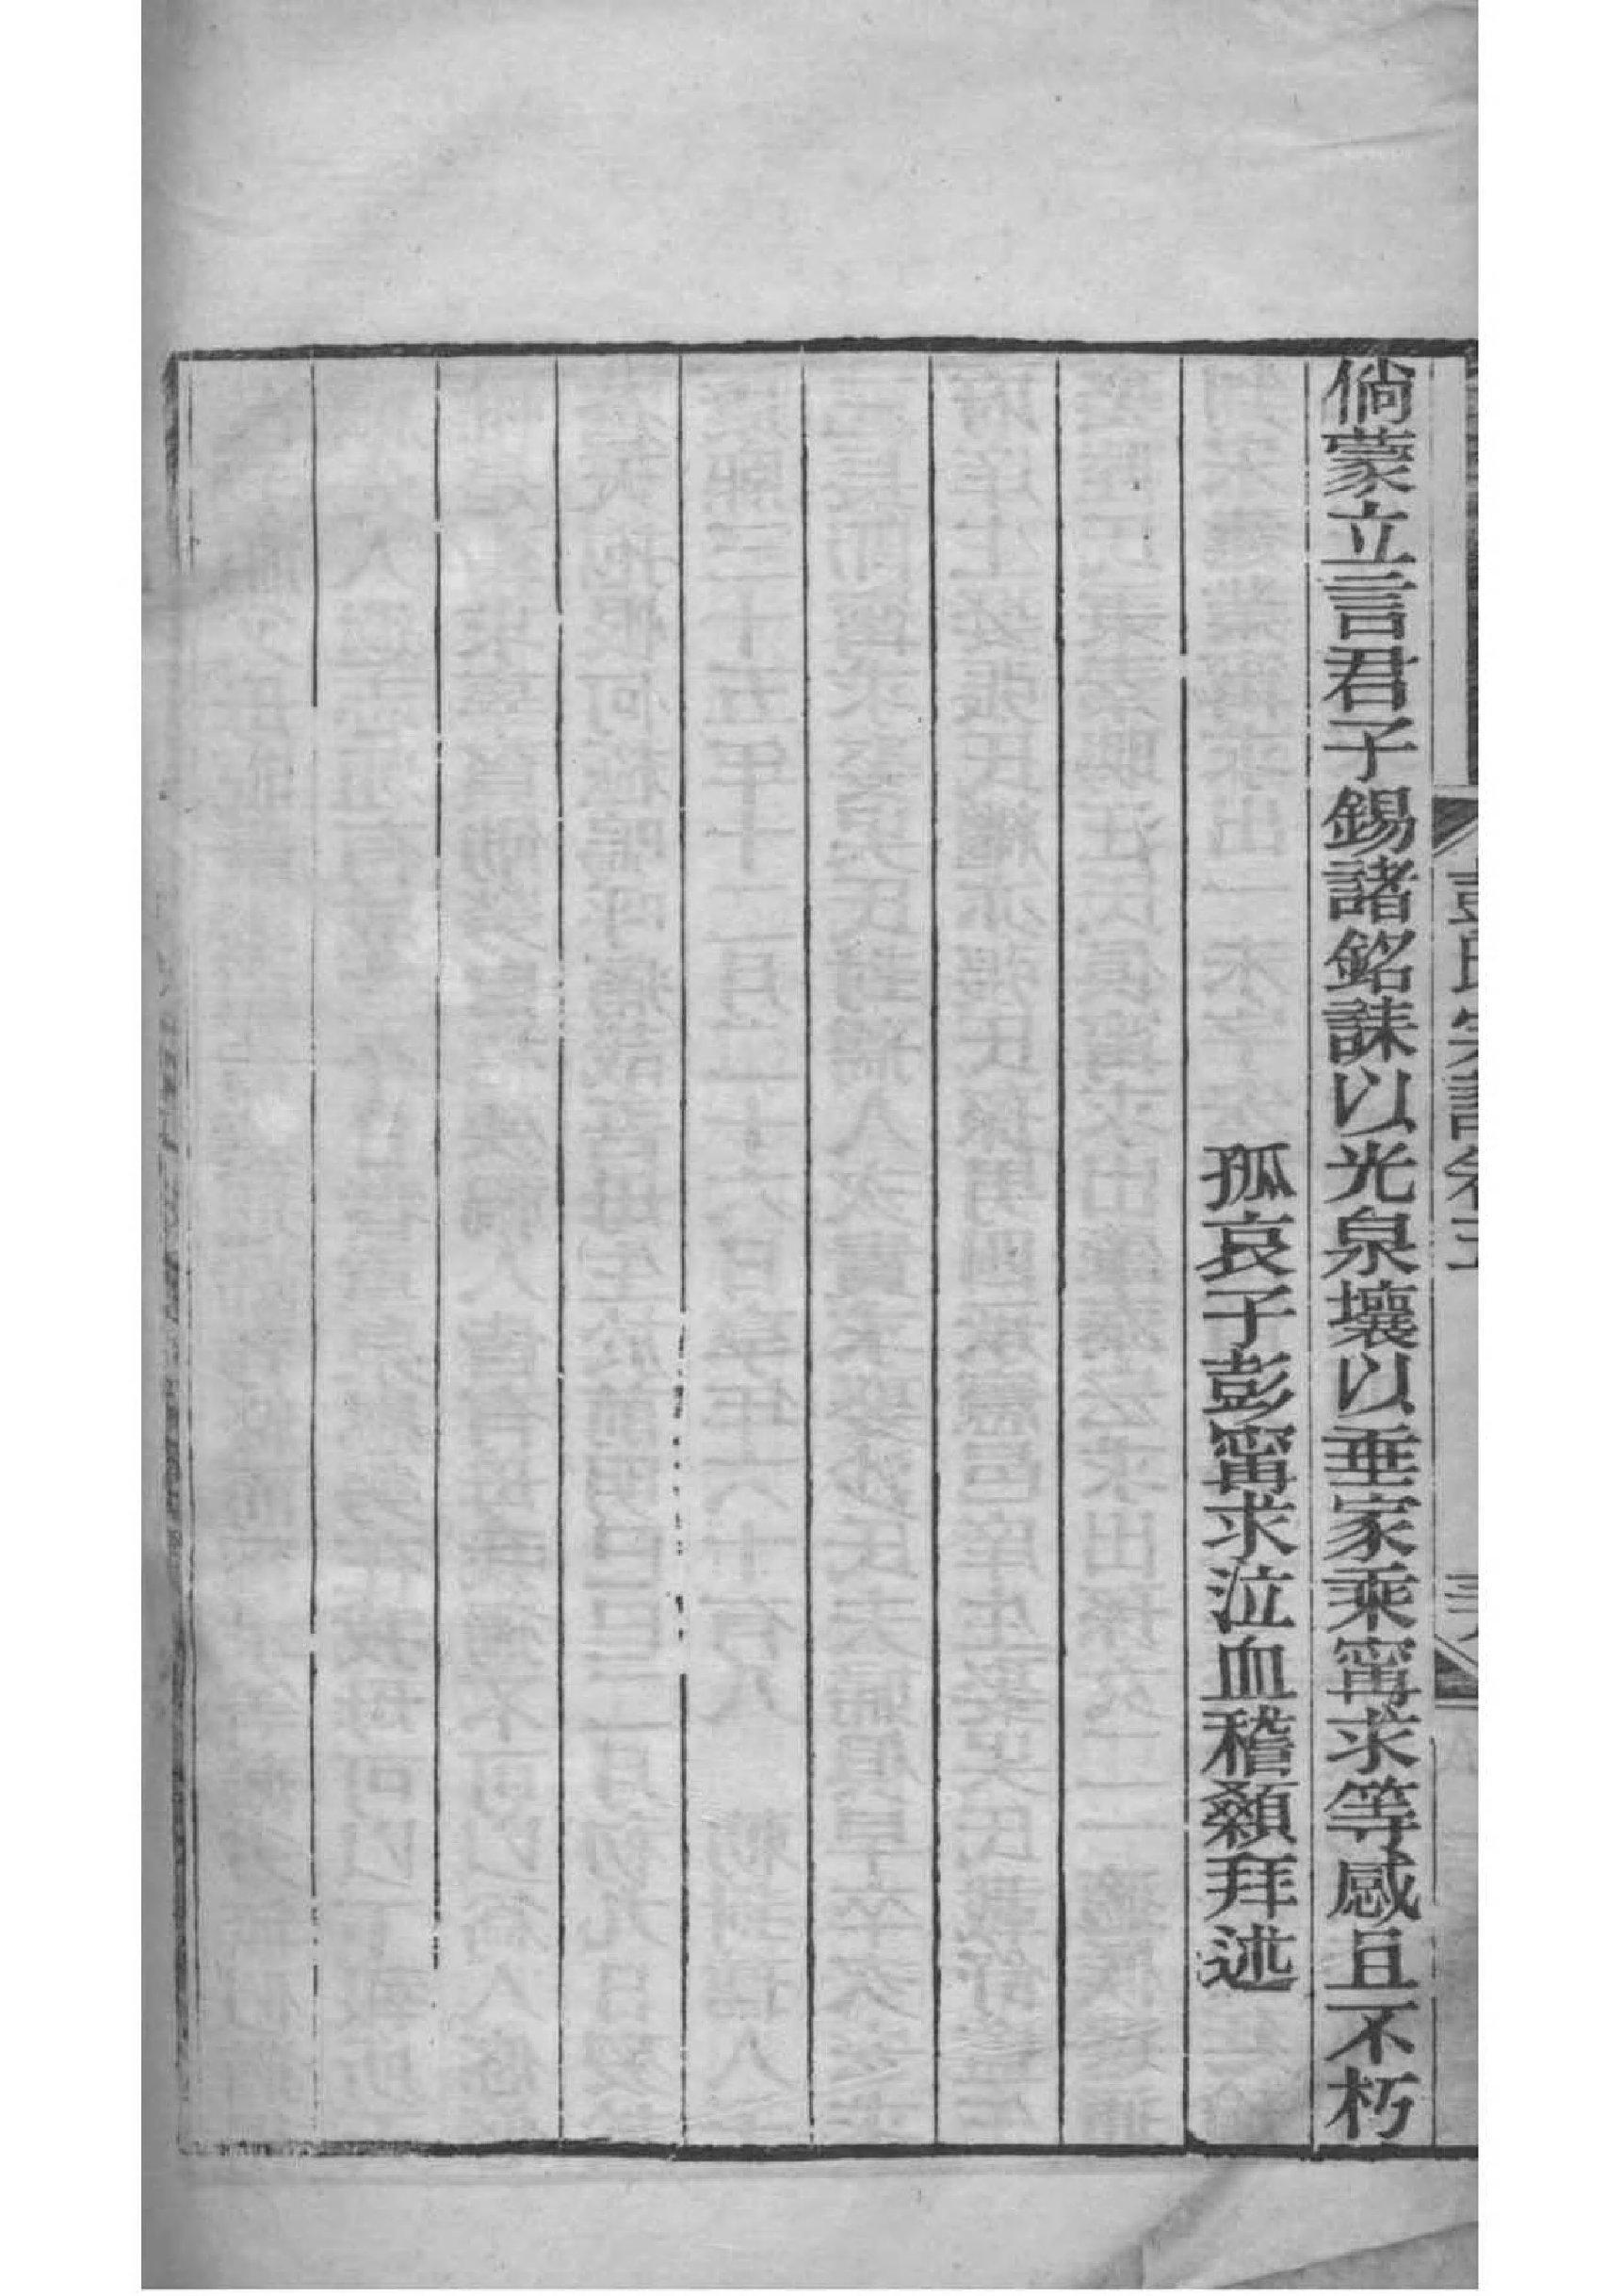 彭氏宗譜卷三
三八
倘蒙立言君子錫諸銘誄以光泉壤以垂家乘甯求等感且不朽
孤哀子彭甯求泣血稽顙拜述